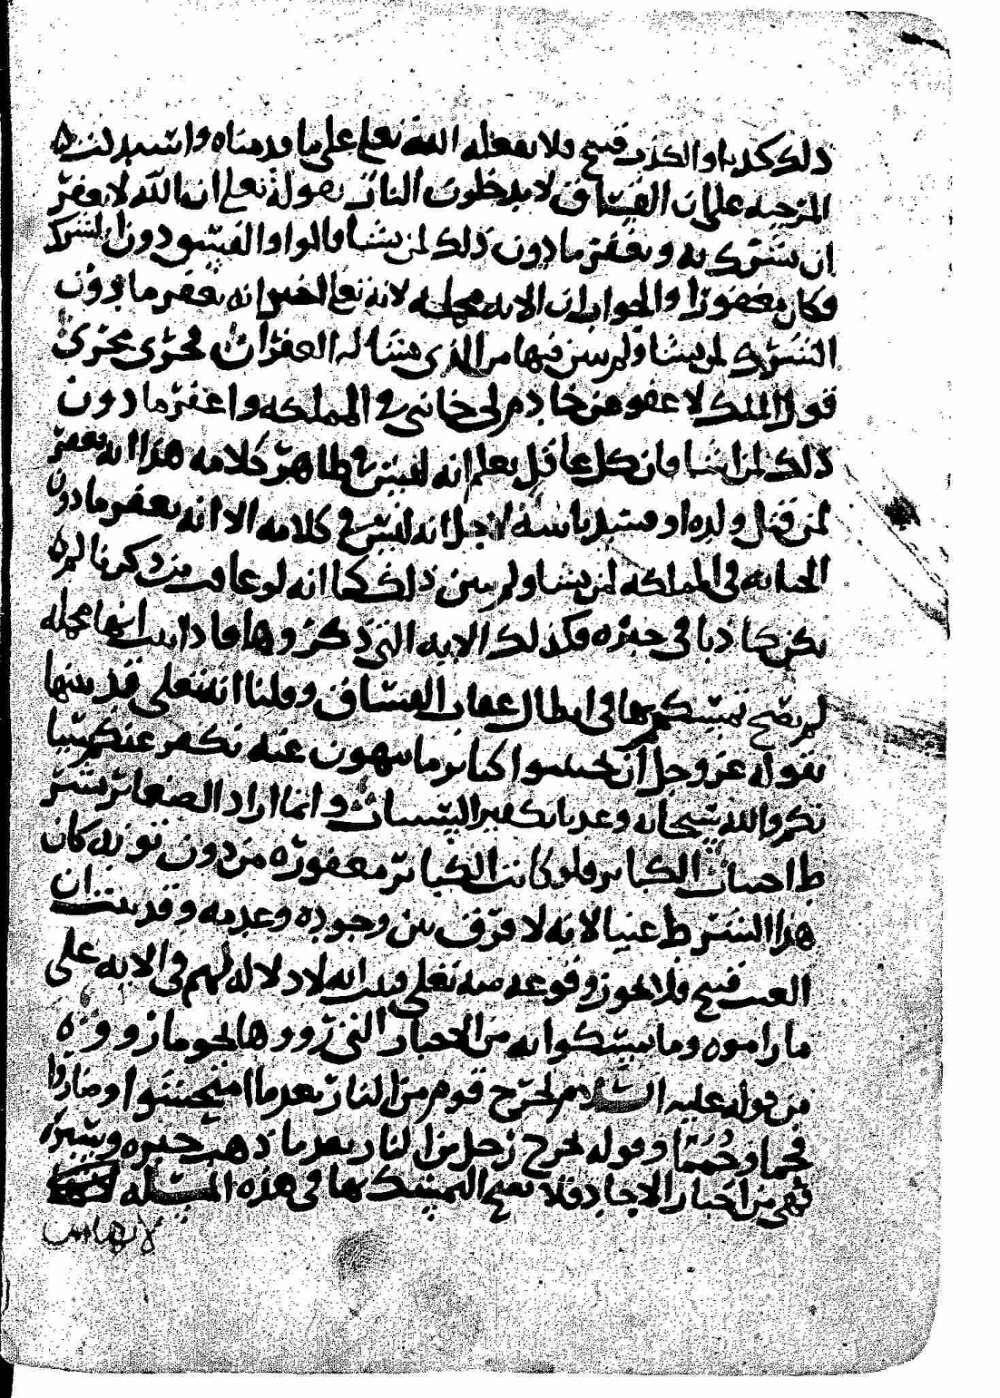 ذلك كذبا والكذب قبيح فلا يفعله الله تعلى على ما قدمناه واستدلت
المرجية على ان الفساق لا يدخلون النار بقوله تعلى ان الله لا يغفر
ان يشرك به ويغفر ما دون ذلك لمن يشا قالوا والفسق دون الشرك
فكان مغفورا والجواب ان الاية مجملة لانه تعلى اخبر انه يغفر ما دون
الشرك لمن يشا ولم يبين فيها من الذي يشا له الغفران فجرى مجرى
قول الملك لا عفو عن خادم لي خانني في المملكة واغفر ما دون
ذلك لمن اشا فان كل عاقل يعلم انه ليس في ظاهر كلامه هذا انه يغفر
لمن قتل ولده او لاجل انه ليس في كلامه الا انه يغفر ما دون
الخيانة في المملكة لمن يشا ولم يبين ذلك كما انه لو عاقب من ذكرنا لم
يكن كاذبا في خبره فكذلك الاية التي ذكروها فاذا ثبت انها مجملة
لم يصح تمسكهم بها في ابطال عقاب الفساق وقلنا انه تعلى قد بينها
بقوله عز وجل ان تجتنبوا كبائر ما تنهون عنه نكفر عنكم سيا
تكم والله سبحانه وعد بتكفير السيئات وانما اراد الصغائر بشر
ط اجتناب الكبائر فلو كانت الكبائر مغفورة من دون توبة كان
هذا الشرط عبثا لانه لا فرق بين وجوده وعدمه وقد بينت ان
العبث قبيح فلا يجوز وقوعه منه تعلى فثبت انه لا دلالة لهم في الاية على
ما راموه وما تمسكوا به من الاخبار التي رووها نحو ما رووه
من قوله عليه السلام يخرج قوم من النار بعد ما امتحشوا وصاروا
فحما وحمما وقوله يخرج رجل من النار بعد ما ذهب حبره وسبره
فهي من اخبار الاحاد فلا يصح التمسك بها في هذه المسئلة
لانها من